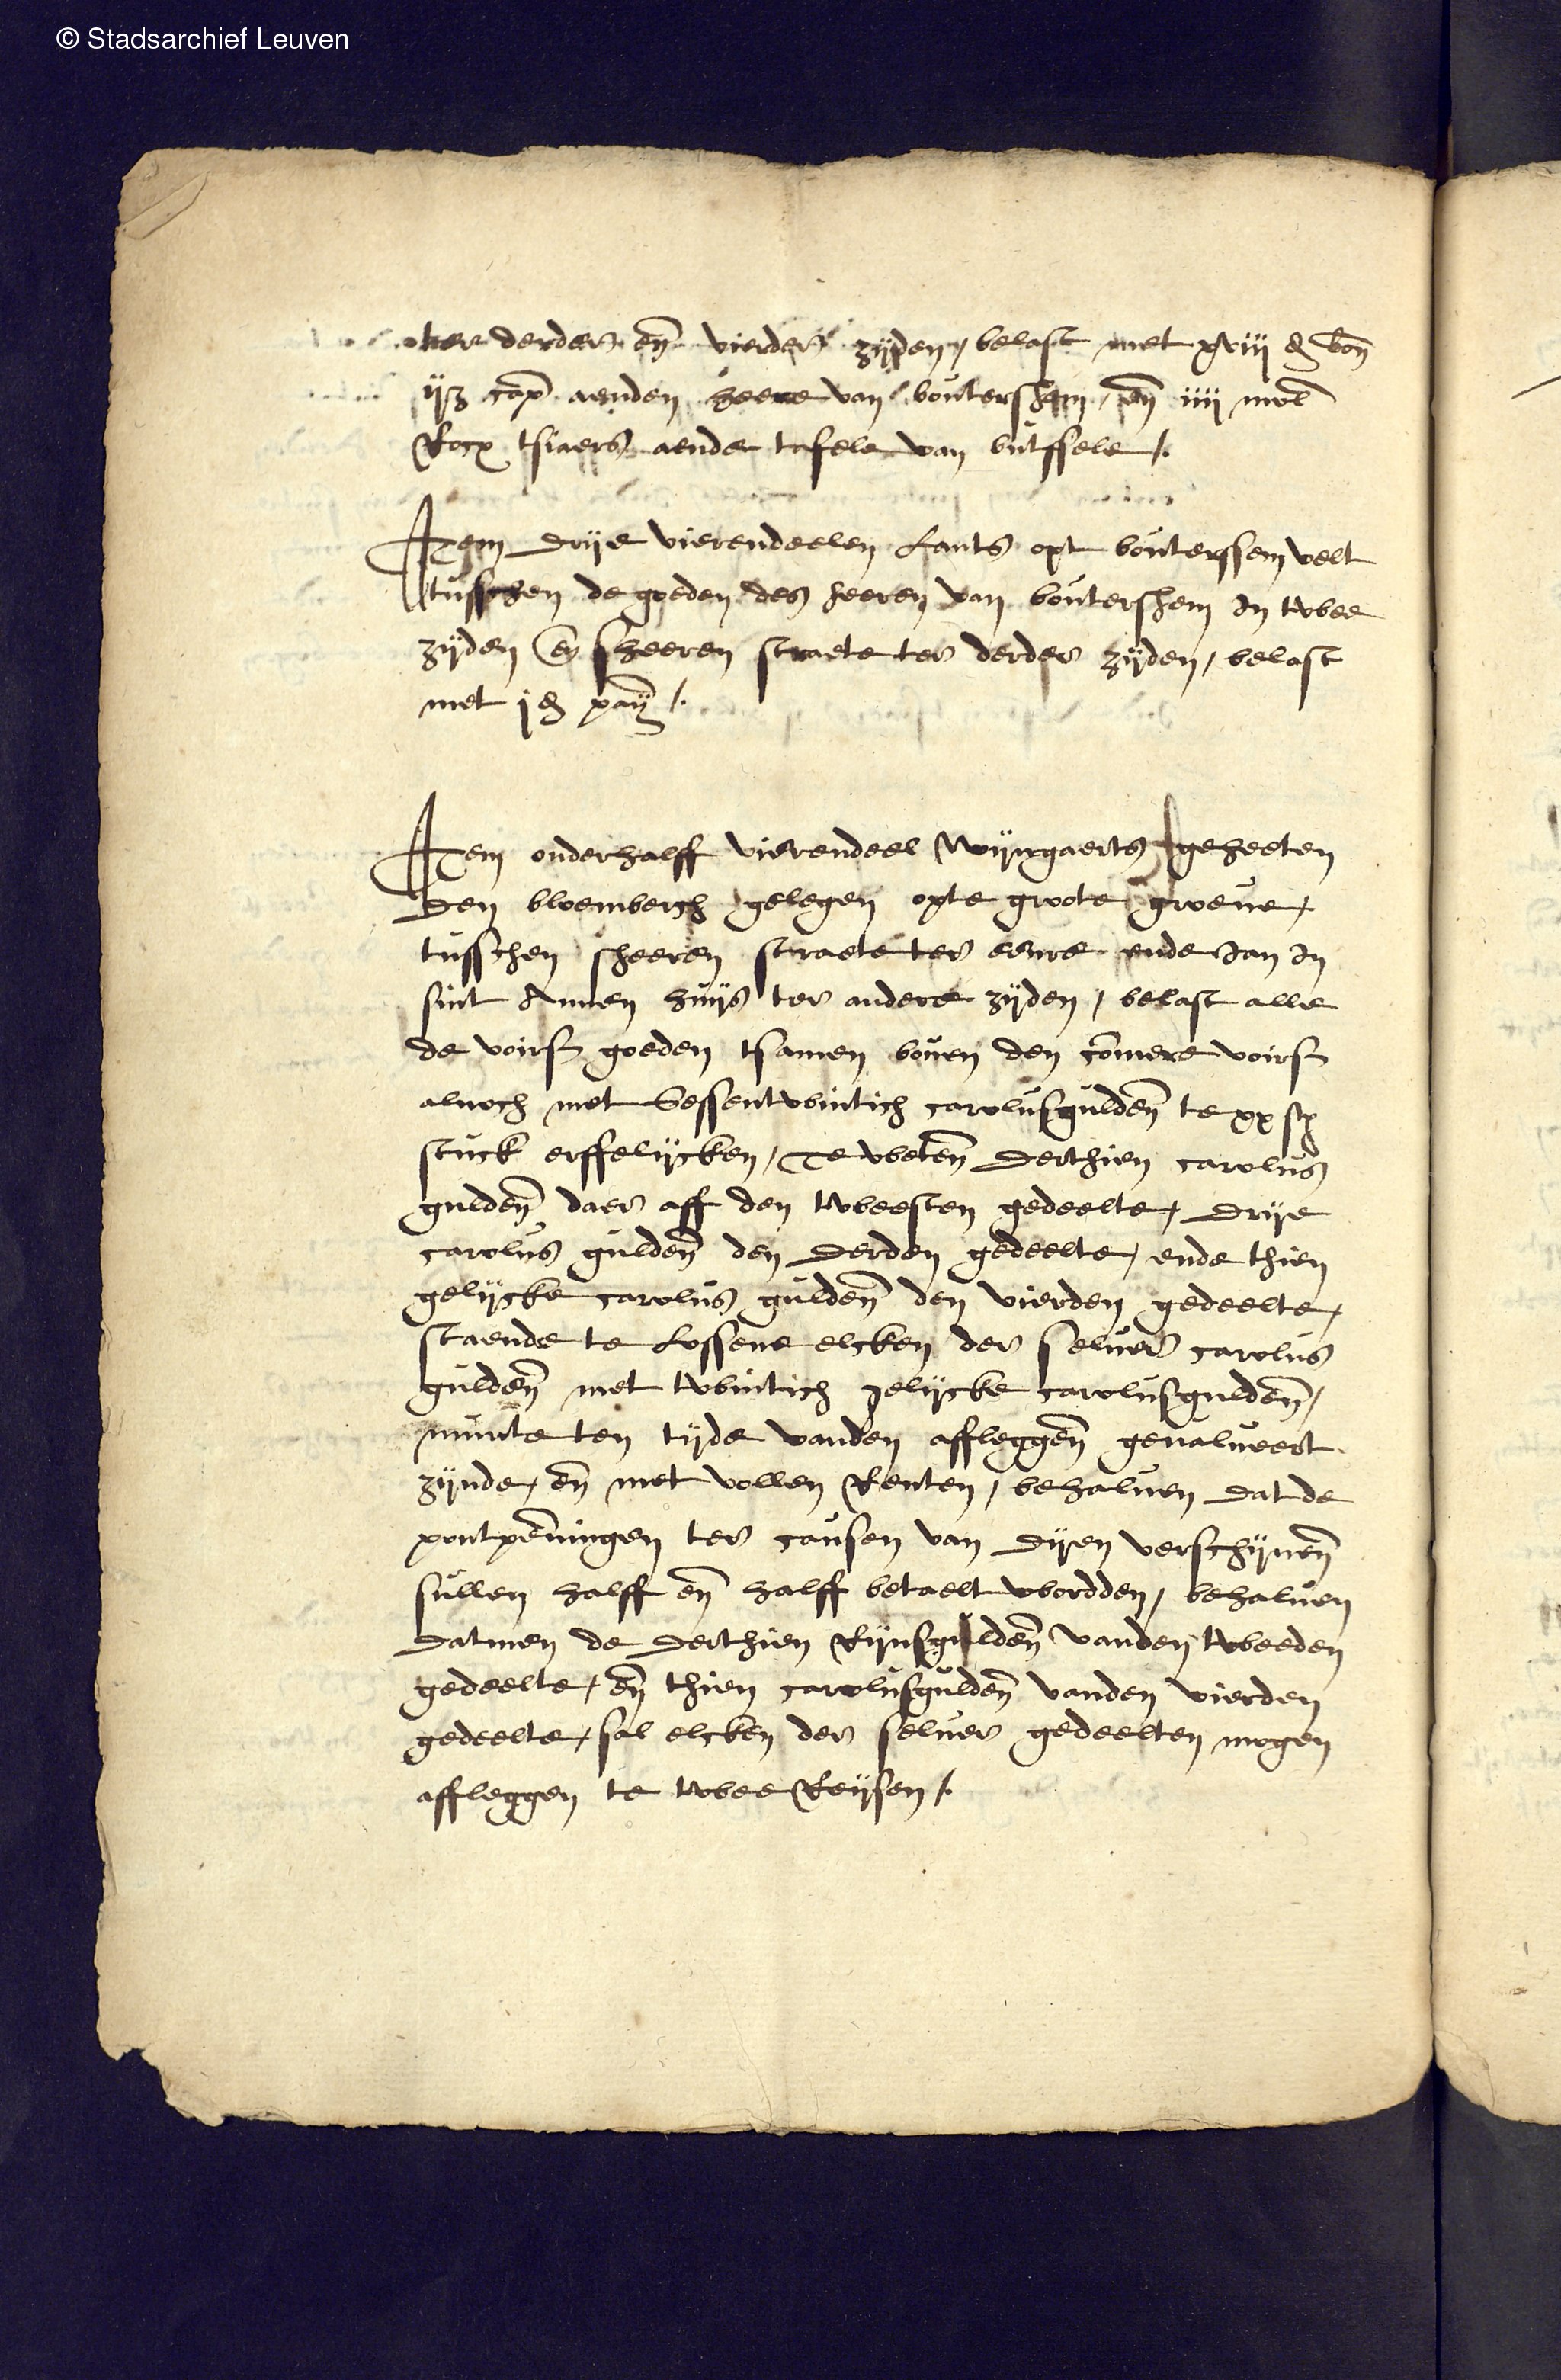 © Stadsarchief Leuven
ter derder en̄ vierder zijden, belast met xviij d bon̄
ijȝ cap̄ aenden heere van boutershem, en̄ iiij mol̄
Rocx tsiaers aende tafele van butssele /.
Item drije vierendeelen Lants opt bouterssem velt
tusschen de goeden des heeren van boutershem In twee
zijden en̄ sheeren straete ter derder zijden, belast
met j d paȳ /.
Item onderhalff vierendeel Wijngaerts geheeten
den bloemberch gelegen opte groote groeue,
tusschen sheeren straete ter eenre ende Jan In
sint Annen huijs ter andere zijden, belast alle
de voirs goeden tsamen bouen den com̄ere voirs
alnoch met sessentwintich carolusgulden̄ te xx st
stuck erffelijcken, Te weten̄ derthien carolus
gulden̄ daer aff den tweesten gedeelte, drije
carolus gulden̄ den derden gedeelte, ende thien
gelijcke carolus gulden̄ den vierden gedeelte,
staende te Lossene elcken der seluer carolus
gulden̄ met twintich gelijcke carolusgulden̄,
munte ten tijde vanden affleggen̄ geualueert
zijnde, en̄ met vollen Renten, behaluen dat de
pontpen̄ingen ter causen van dijen verschijnen̄
sullen halff en̄ halff betaelt wordden, behaluen
datmen de derthien Rijnsgulden̄ vanden tweeden
gedeelte, en̄ thien carolusgulden̄ vanden vierden
gedeelte, sal elcken der seluer gedeelten mogen
affleggen te twee Reijsen /.